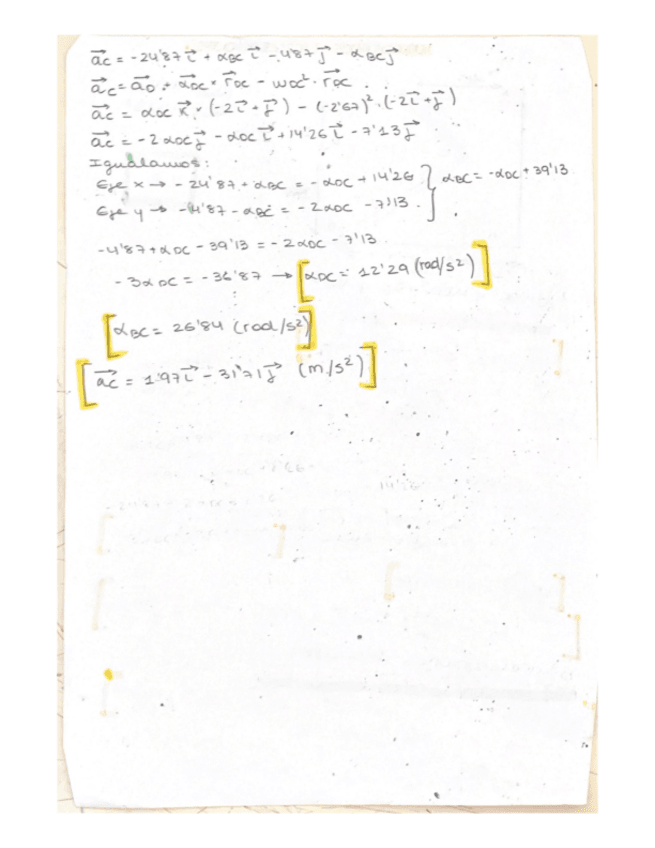 a⃗c = -24'87 i⃗ + αBC i⃗ - 4'87 j⃗ - αBC j⃗
a⃗c = a⃗D + α⃗DC × r⃗DC - ωDC² · r⃗DC
a⃗c = αDC k⃗ × (-2i⃗ + j⃗) - (-2'67)² · (-2i⃗ + j⃗)
a⃗c = -2αDC j⃗ - αDC i⃗ + 14'26 i⃗ - 7'13 j⃗
Igualamos:
Eje x → -24'87 + αBC = -αDC + 14'26 } αBC = -αDC + 39'13
Eje y → -4'87 - αBC = -2αDC - 7'13
-4'87 + αDC - 39'13 = -2αDC - 7'13
-3αDC = -36'87 → [αDC = 12'29 (rad/s²)]
[αBC = 26'84 (rad/s²)]
[a⃗c = 1'97 i⃗ - 31'71 j⃗ (m/s²)]